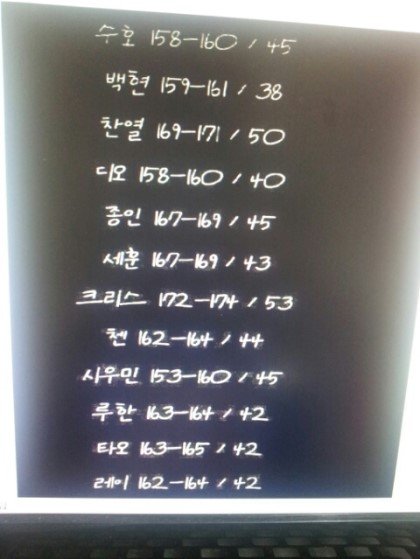 수호 158-160 / 45
백현 159-161 / 38
찬열 169-171 / 50
디오 158-160 / 40
종인 167-169 / 45
세훈 167-169 / 43
크리스 172-174 / 53
첸 162-164 / 44
시우민 153-160 / 45
루한 163-164 / 42
타오 163-165 / 42
레이 162-164 / 42